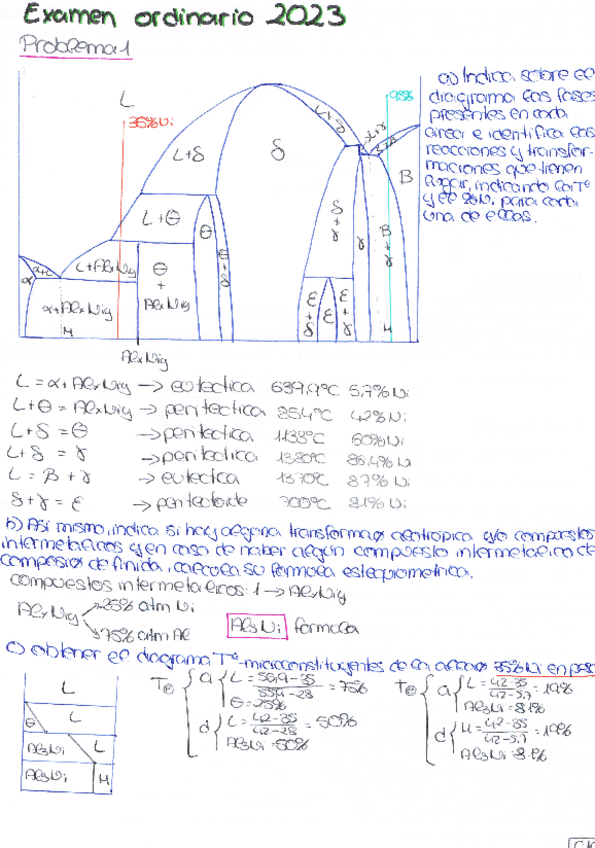 Examen ordinario 2023
Problema 1
a) Indica sobre el
diagrama las fases
presentes en cada
área e identifica las
reacciones y transfor-
maciones que tienen
lugar, indicando la Tº
y el % Ni para cada
una de ellas.
L
35% Ni
98%
L+δ
δ
L+δ
L+γ
B
L+θ
θ
δ
+
γ
B
+
γ
γ
α+L
α
L+AlxNiy
θ
+
AlxNiy
θ
+
δ
α+AlxNiy
ε
+
δ
ε
ε
+
γ
M
M
AlxNiy
L = α+AlxNiy → eutectica 639,9ºC 5,7% Ni
L+θ = AlxNiy → peritectica 854ºC 42% Ni
L+δ = θ → peritectica 1133ºC 60% Ni
L+δ = γ → peritectica 1380ºC 86,4% Ni
L = B+γ → eutectica 1370ºC 87% Ni
δ+γ = ε → peritectoide 700ºC 81% Ni
b) Asi mismo, indica si hay alguna transformación alotropica y/o compuestos
intermetalicos y en caso de haber algún compuesto intermetalico de
composición definida, calcula su formula estequiometrica.
compuestos intermetalicos: 1 → AlxNiy
AlxNiy
25% atm Ni
75% atm Al
Al3Ni formula
c) obtener el diagrama Tº-microconstituyentes de la aleación 35% Ni en peso
L
θ L
Al3Ni L
Al3Ni M
a L = = 75%
θ = 25%
d L = 42-35 / 42-28 = 50%
Al3Ni = 50%
a L = 42-35 / 42-5,7 = 19%
Al3Ni = 81%
d M = 42-35 / 42-5,7 = 19%
Al3Ni = 81%